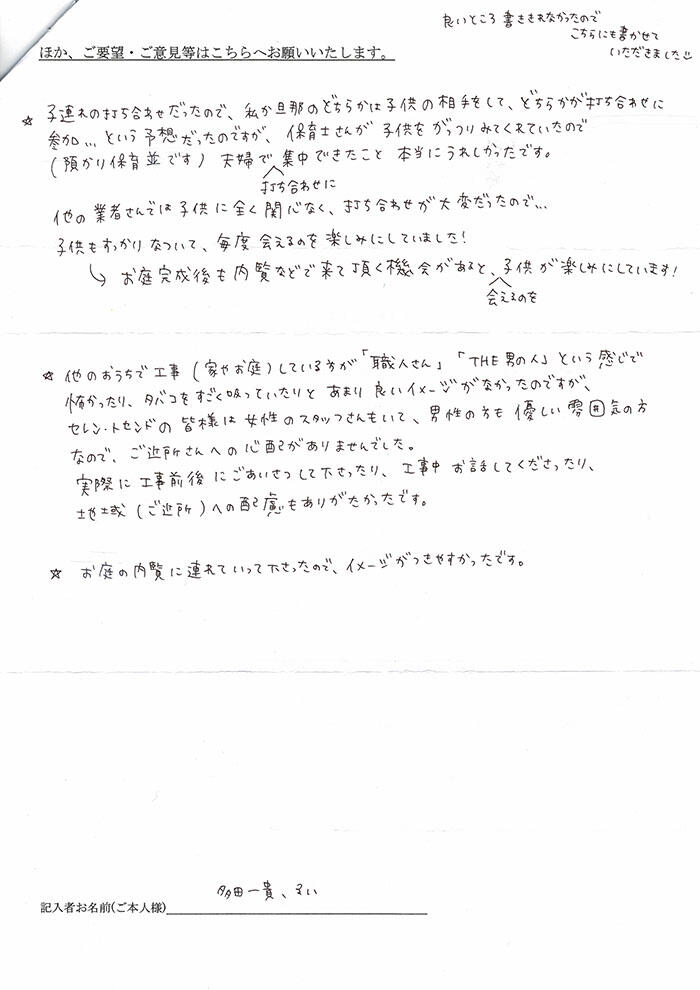 良いところ書ききれなかったので
こちらにも書かせて
いただきました☺
ほか、ご要望・ご意見等はこちらへお願いいたします。
☆ 子連れの打ち合わせだったので、私か旦那のどちらかは子供の相手をして、どちらかが打ち合わせに
参加... という予想だったのですが、保育士さんが子供をがっつりみてくれていたので
(預かり保育並です) 夫婦で集中できたこと 本当にうれしかったです。
打ち合わせに
他の業者さんでは子供に全く関心なく、打ち合わせが大変だったので...
子供もすっかりなついて、毎度会えるのを楽しみにしていました!
↳ お庭完成後も内覧などで来て頂く機会があると、子供が楽しみにしています!
会えるのを
☆ 他のおうちで工事 (家やお庭) している方が「職人さん」「THE男の人」という感じで
怖かったり、タバコをすごく吸っていたりと あまり良いイメージがなかったのですが、
セレン・トセンドの皆様は女性のスタッフさんもいて、男性の方も優しい雰囲気の方
なので、ご近所さんへの心配がありませんでした。
実際に工事前後にごあいさつして下さったり、工事中お話してくださったり、
地域 (ご近所) への配慮もありがたかったです。
☆ お庭の内覧に連れていって下さったので、イメージがつきやすかったです。
多田一貴、るい
記入者お名前(ご本人様)